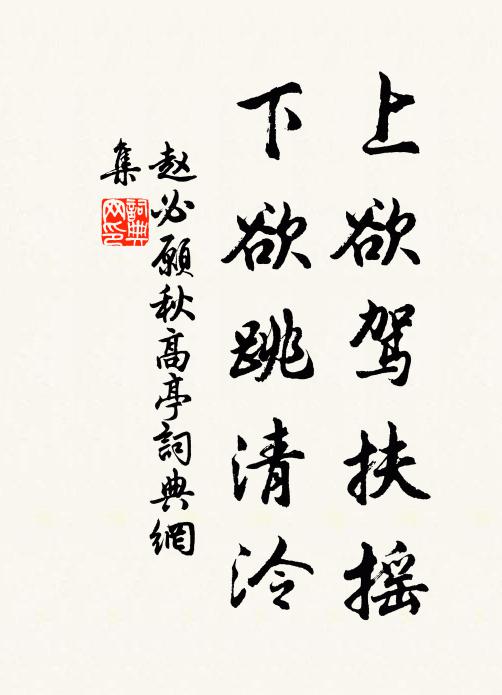 上欲驾扶摇
下欲跳清泠
赵必愿秋高亭詞典網
集
詞典
网印